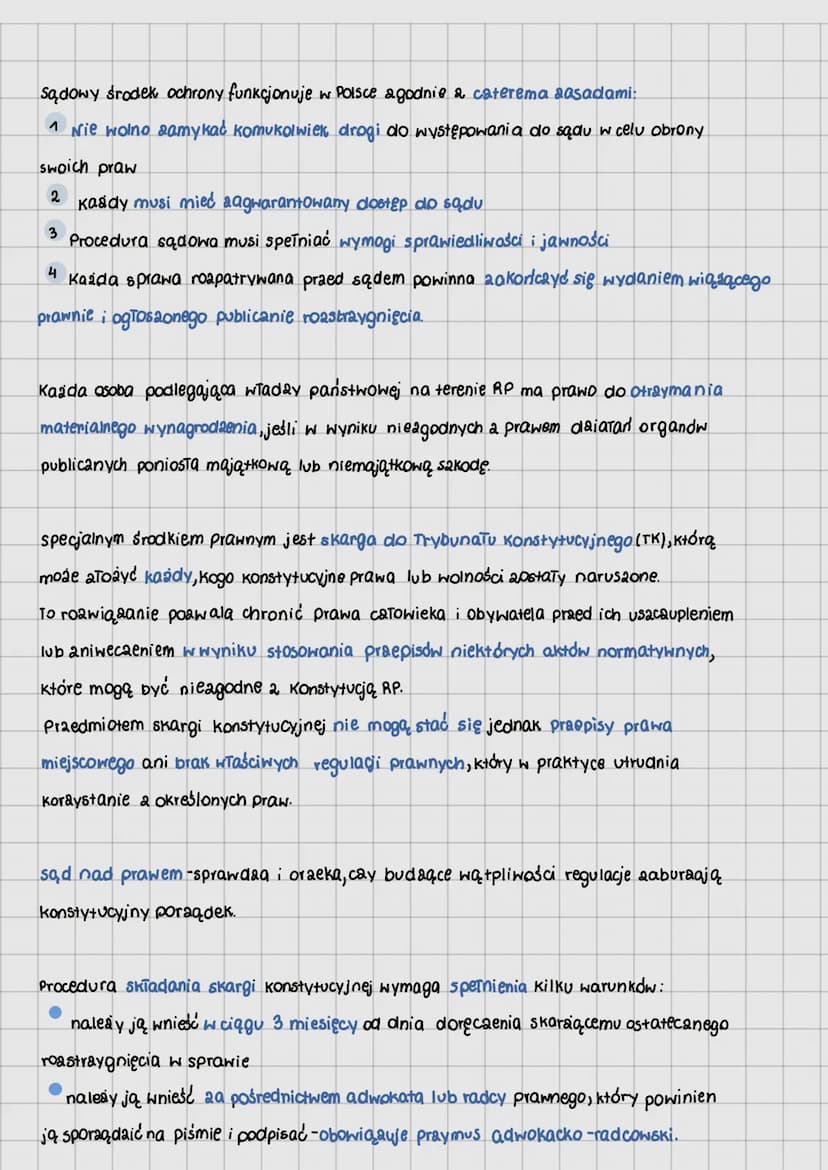 sądowy środek ochrony funkcjonuje w Polsce zgodnie z czterema zasadami:
1 Nie wolno zamykać komukolwiek drogi do występowania do sądu w celu obrony
swoich praw
2 Każdy musi mieć zagwarantowany dostęp do sądu
3 Procedura sądowa musi spełniać wymogi sprawiedliwości i jawności
4 Każda sprawa rozpatrywana przed sądem powinna zakończyć się wydaniem wiążącego
prawnie i ogłoszonego publicznie rozstrzygnięcia.
Każda osoba podlegająca władzy państwowej na terenie RP ma prawo do otrzymania
materialnego wynagrodzenia, jeśli w wyniku niezgodnych z prawem działań organów
publicznych poniosła majątkową lub niemajątkową szkodę.
specjalnym środkiem prawnym jest skarga do Trybunału Konstytucyjnego (TK), którą
może złożyć każdy, kogo konstytucyjne prawa lub wolności zostały naruszone.
To rozwiązanie pozwala chronić prawa człowieka i obywatela przed ich uszczupleniem
lub zniweczeniem w wyniku stosowania przepisów niektórych aktów normatywnych,
które mogą być niezgodne z Konstytucją RP.
Przedmiotem skargi konstytucyjnej nie mogą stać się jednak przepisy prawa
miejscowego ani brak właściwych regulacji prawnych, który w praktyce utrudnia
korzystanie z określonych praw.
sąd nad prawem - sprawdza i orzeka, czy budzące wątpliwości regulacje zaburzają
konstytucyjny porządek.
Procedura składania skargi konstytucyjnej wymaga spełnienia kilku warunków:
● należy ją wnieść w ciągu 3 miesięcy od dnia doręczenia skarżącemu ostatecznego
rozstrzygnięcia w sprawie
● należy ją wnieść za pośrednictwem adwokata lub radcy prawnego, który powinien
ją sporządzić na piśmie i podpisać - obowiązuje przymus adwokacko-radcowski.